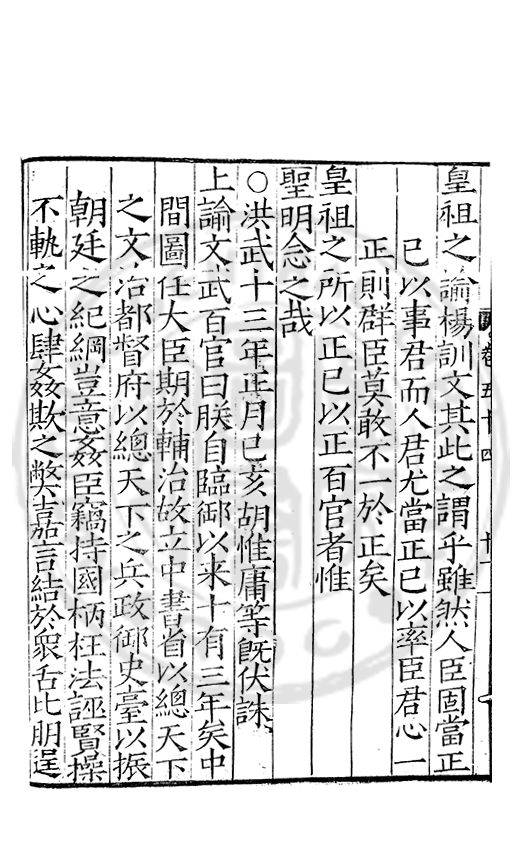 皇祖之諭楊訓文其此之謂乎雖然人臣固當正
己以事君而人君尤當正己以率臣君心一
正則群臣莫敢不一於正矣
皇祖之所以正己以正百官者惟
聖明念之哉
○洪武十三年正月己亥胡惟庸等既伏誅
上諭文武百官曰朕自臨御以来十有三年矣中
間圖任大臣期於輔治故立中書省以總天下
之文治都督府以總天下之兵政御史臺以振
朝廷之紀綱豈意姦臣竊持國柄枉法誣賢操
不軌之心肆姦欺之弊嘉言結於衆舌比朋逞
卷五十四